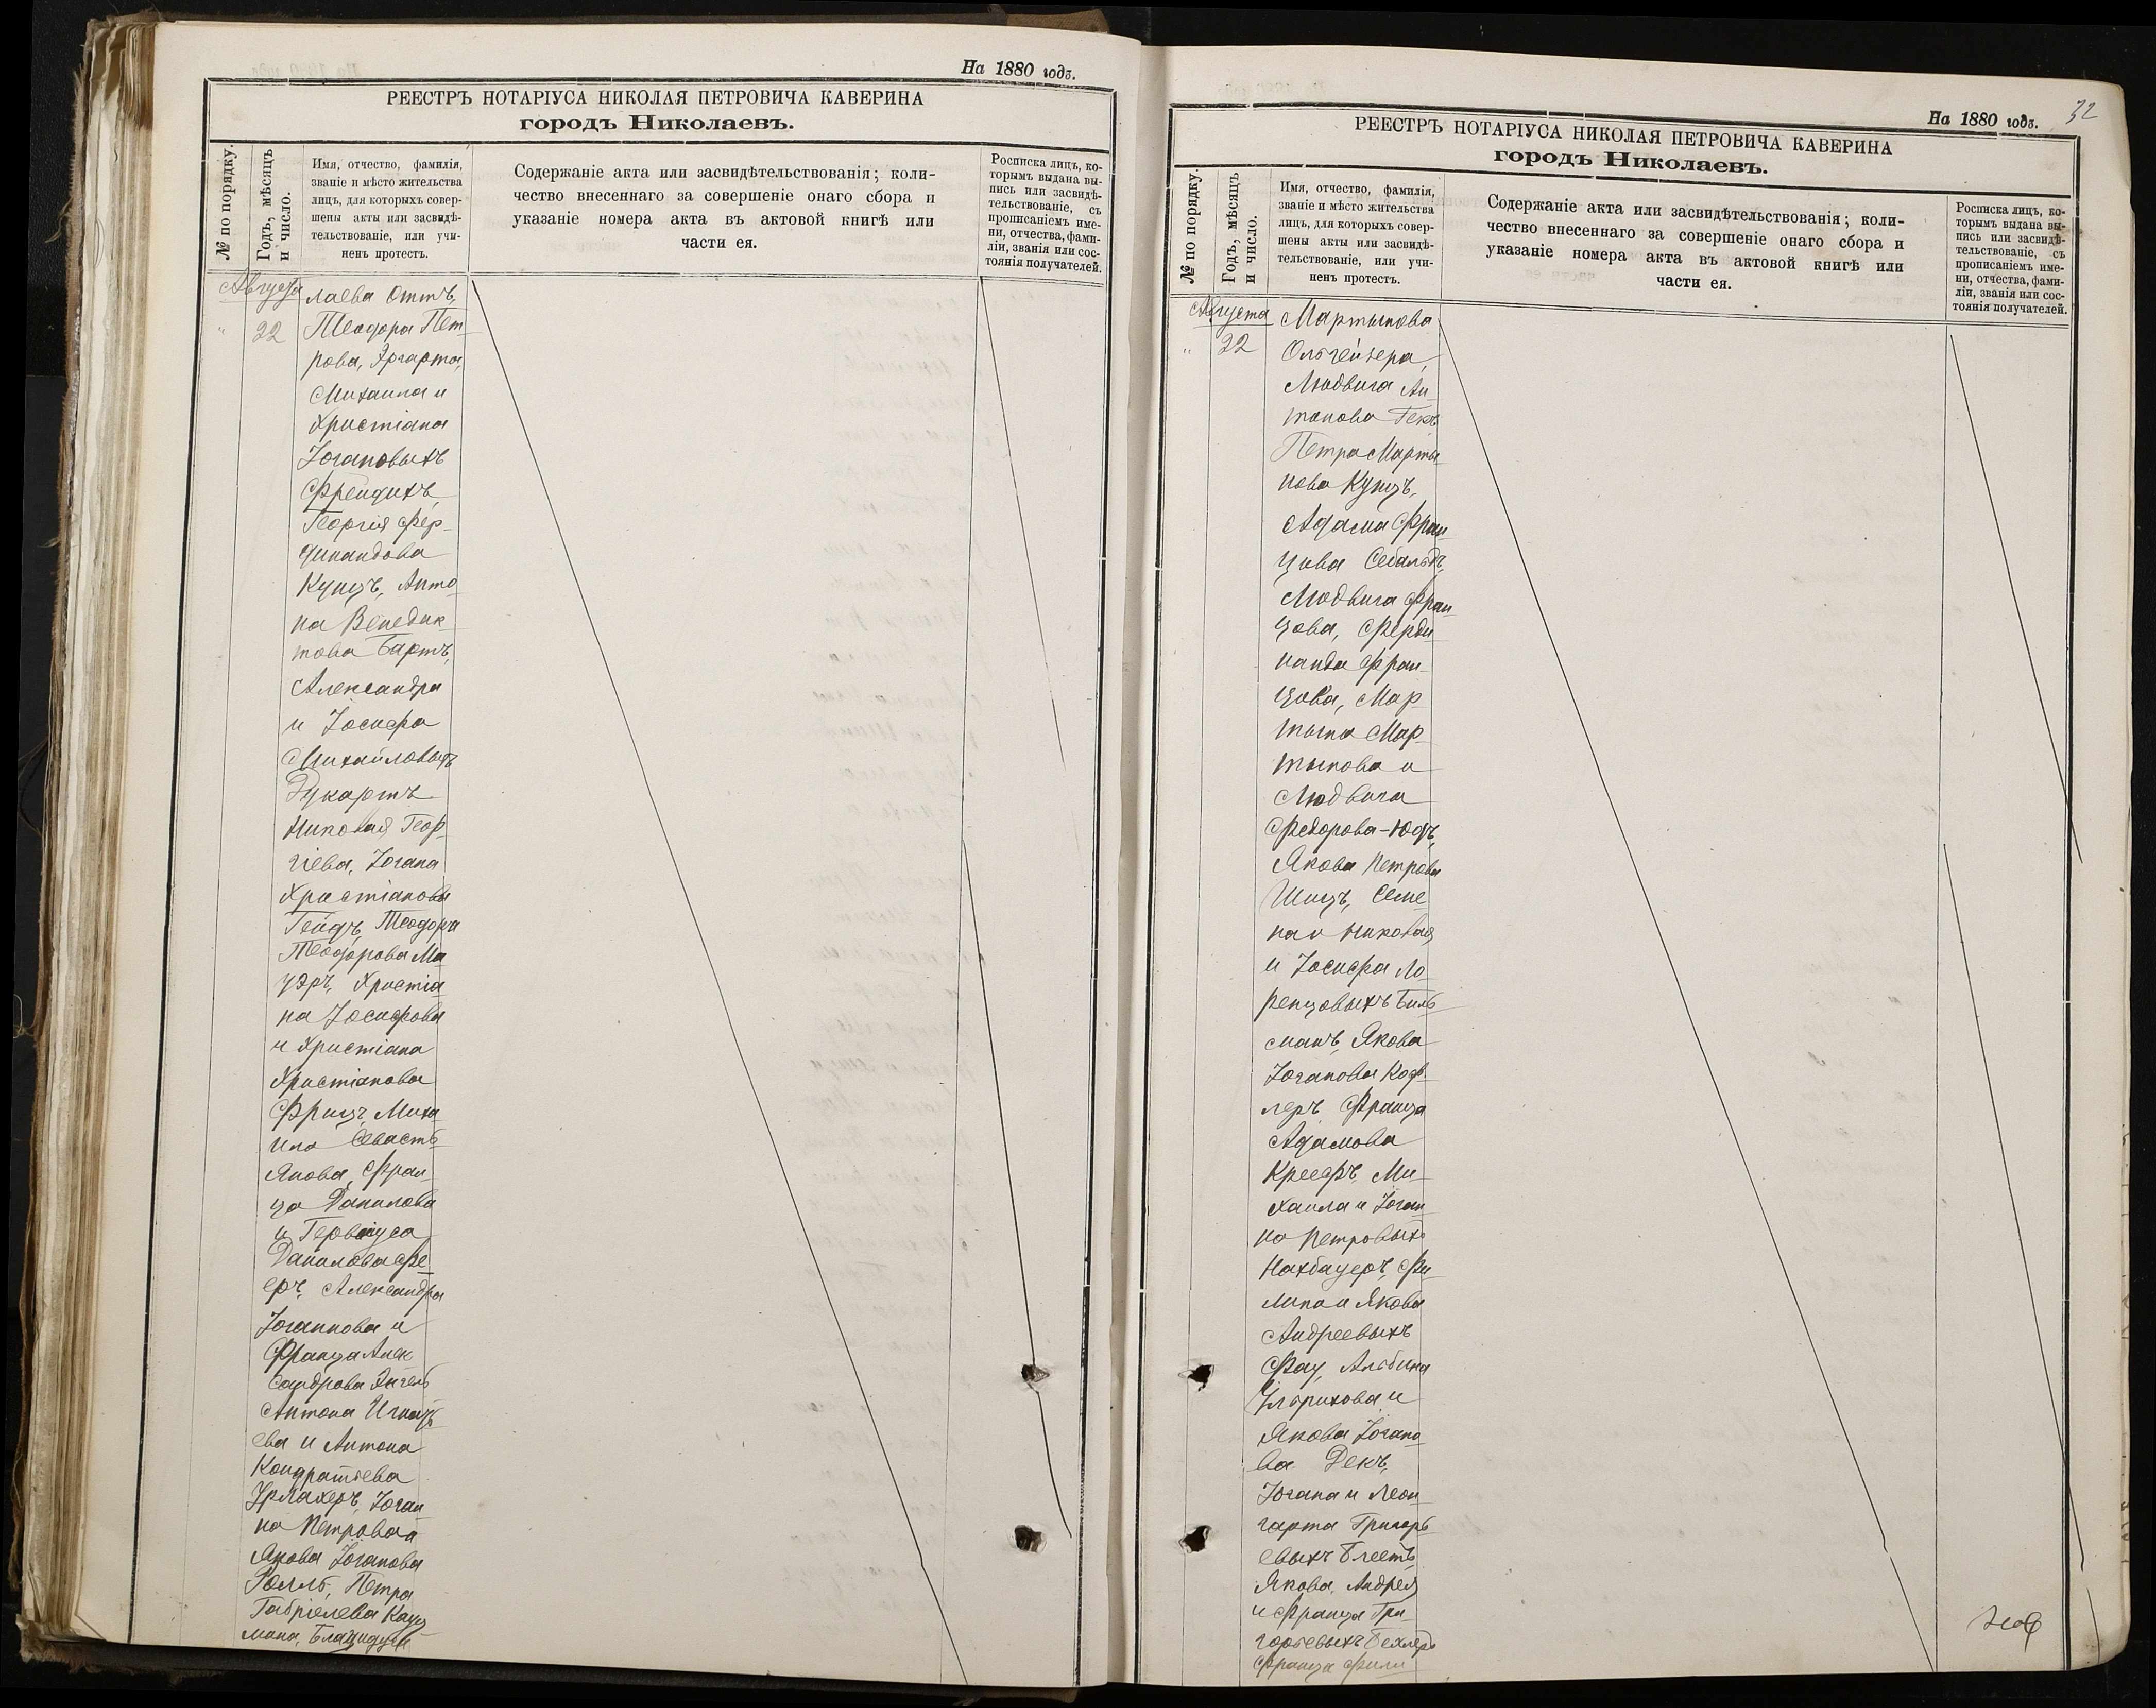 На 1880 годъ.
РЕЕСТРЪ НОТАРІУСА НИКОЛАЯ ПЕТРОВИЧА КАВЕРИНА
городъ Николаевъ.
№ по порядку.
Годъ, мѣсяцъ
и число.
Имя, отчество, фамилія,
званіе и мѣсто жительства
лицъ, для которыхъ совер-
шены акты или засвидѣ-
тельствованіе, или учи-
ненъ протестъ.
Содержаніе акта или засвидѣтельствованія; коли-
чество внесеннаго за совершеніе онаго сбора и
указаніе номера акта въ актовой книгѣ или
части ея.
Росписка лицъ, ко-
торымъ выдана вы-
пись или засвидѣ-
тельствованіе, съ
прописаніемъ име-
ни, отчества, фами-
ліи, званія или сос-
тоянія получателей.
Августа
лаева Оттъ,
" 22 Теодора Пет-
рова, Эргарта,
Михаила и
Христіана
Іогановыхъ
Фрейдихъ,
Георгія Фер-
динандова
Кунцъ, Анто-
на Венедик-
това Бартъ,
Александра
и Іосифа
Михайловыхъ
Дукартъ
Николая Геор-
гіева, Іогана
Христіанова
Гейдъ, Теодора
Теодорова Ма-
уэръ, Христіа-
на Іосифова
и Христіана
Христіанова
Фрицъ, Миха-
ила Севасть-
янова, Фран-
ца Данилова
и Герваіуса
Данилова Фе-
еръ, Александра
Іоганнова и
Франца Алек-
сандрова Энгель
Антона Игнать-
ева и Антона
Кондратьева
Урлахеръ, Іоган-
на Петрова и
Якова Іоганова
Ролль, Петра
Габріелева Кауц-
мана,
На 1880 годъ.
32
РЕЕСТРЪ НОТАРІУСА НИКОЛАЯ ПЕТРОВИЧА КАВЕРИНА
городъ Николаевъ.
№ по порядку.
Годъ, мѣсяцъ
и число.
Имя, отчество, фамилія,
званіе и мѣсто жительства
лицъ, для которыхъ совер-
шены акты или засвидѣ-
тельствованіе, или учи-
ненъ протестъ.
Содержаніе акта или засвидѣтельствованія; коли-
чество внесеннаго за совершеніе онаго сбора и
указаніе номера акта въ актовой книгѣ или
части ея.
Росписка лицъ, ко-
торымъ выдана вы-
пись или засвидѣ-
тельствованіе, съ
прописаніемъ име-
ни, отчества, фами-
ліи, званія или сос-
тоянія получателей.
Августа
Мартынова
" 22 Ольгейзера,
Людвига Ан-
тонова Гекъ
Петра Марты-
нова Кунцъ,
Адама Фран-
цова Себальдъ,
Людвига Фран-
цова, Ферди-
нанда Фран-
цова, Мар-
тына Мар-
тынова и
Людвига
Федорова-Юдъ,
Якова Петрова
Шицъ, Семе-
на и Николая
и Іосифа Ло-
ренцовыхъ Биль-
манъ, Якова
Іоганова Коф-
леръ Франца
Адамова
Креефъ, Ми-
хаила и Іоган-
на Петровыхъ
Нахбауеръ, Фи-
липа и Якова
Андреевыхъ
Фау, Альбина
Ульрихова и
Якова Іогано-
ва Декъ,
Іогана и Леон-
гарта Григорь-
евыхъ Глеетъ,
Якова, Андрея
и Франца Гри-
горьевыхъ Бехлеръ
Франца Фили-